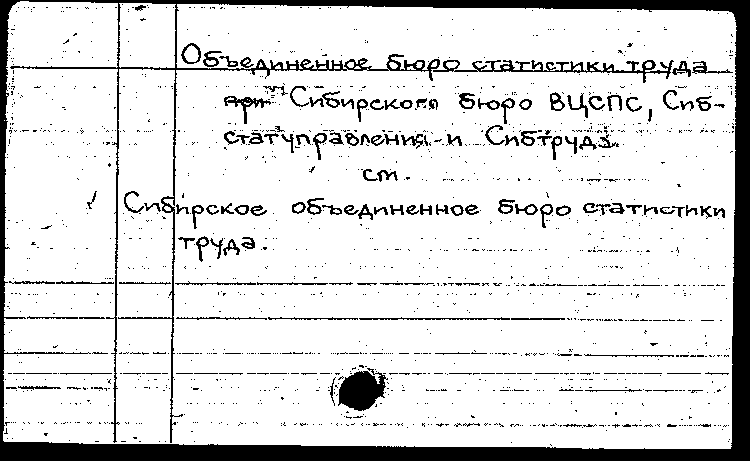 Объединенное бюро статистики труда
при Сибирского бюро ВЦСПС, Сиб-
статуправления и Сибтруда.
см.
Сибирское объединенное бюро статистики
труда.